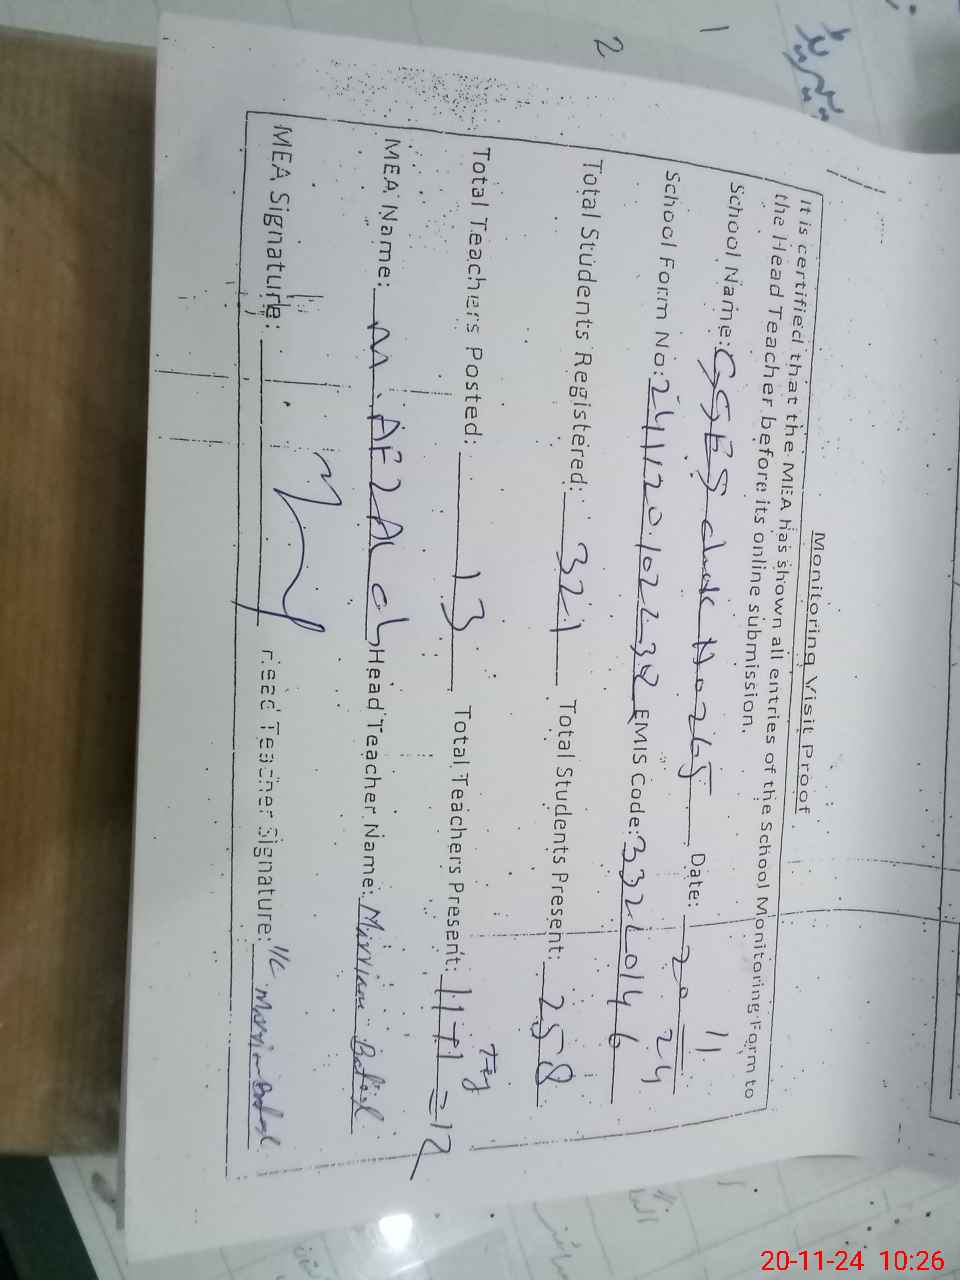 Monitoring Visit Proof
It is certified that the MEA has shown all entries of the School Monitoring Form to
the Head Teacher before its online submission.
School Name: GGES chak No 265 Date: 20 11 24
School Form No: EMIS Code: 33220146
Total Students Registered: 321 Total Students Present: 258
Total Teachers Posted: 13 Total Teachers Present: 11+1 = 12
MEA Name: M. AFZAL Head Teacher Name:
MEA Signature: Head Teacher Signature: I/C
1
2
20-11-24 10:26